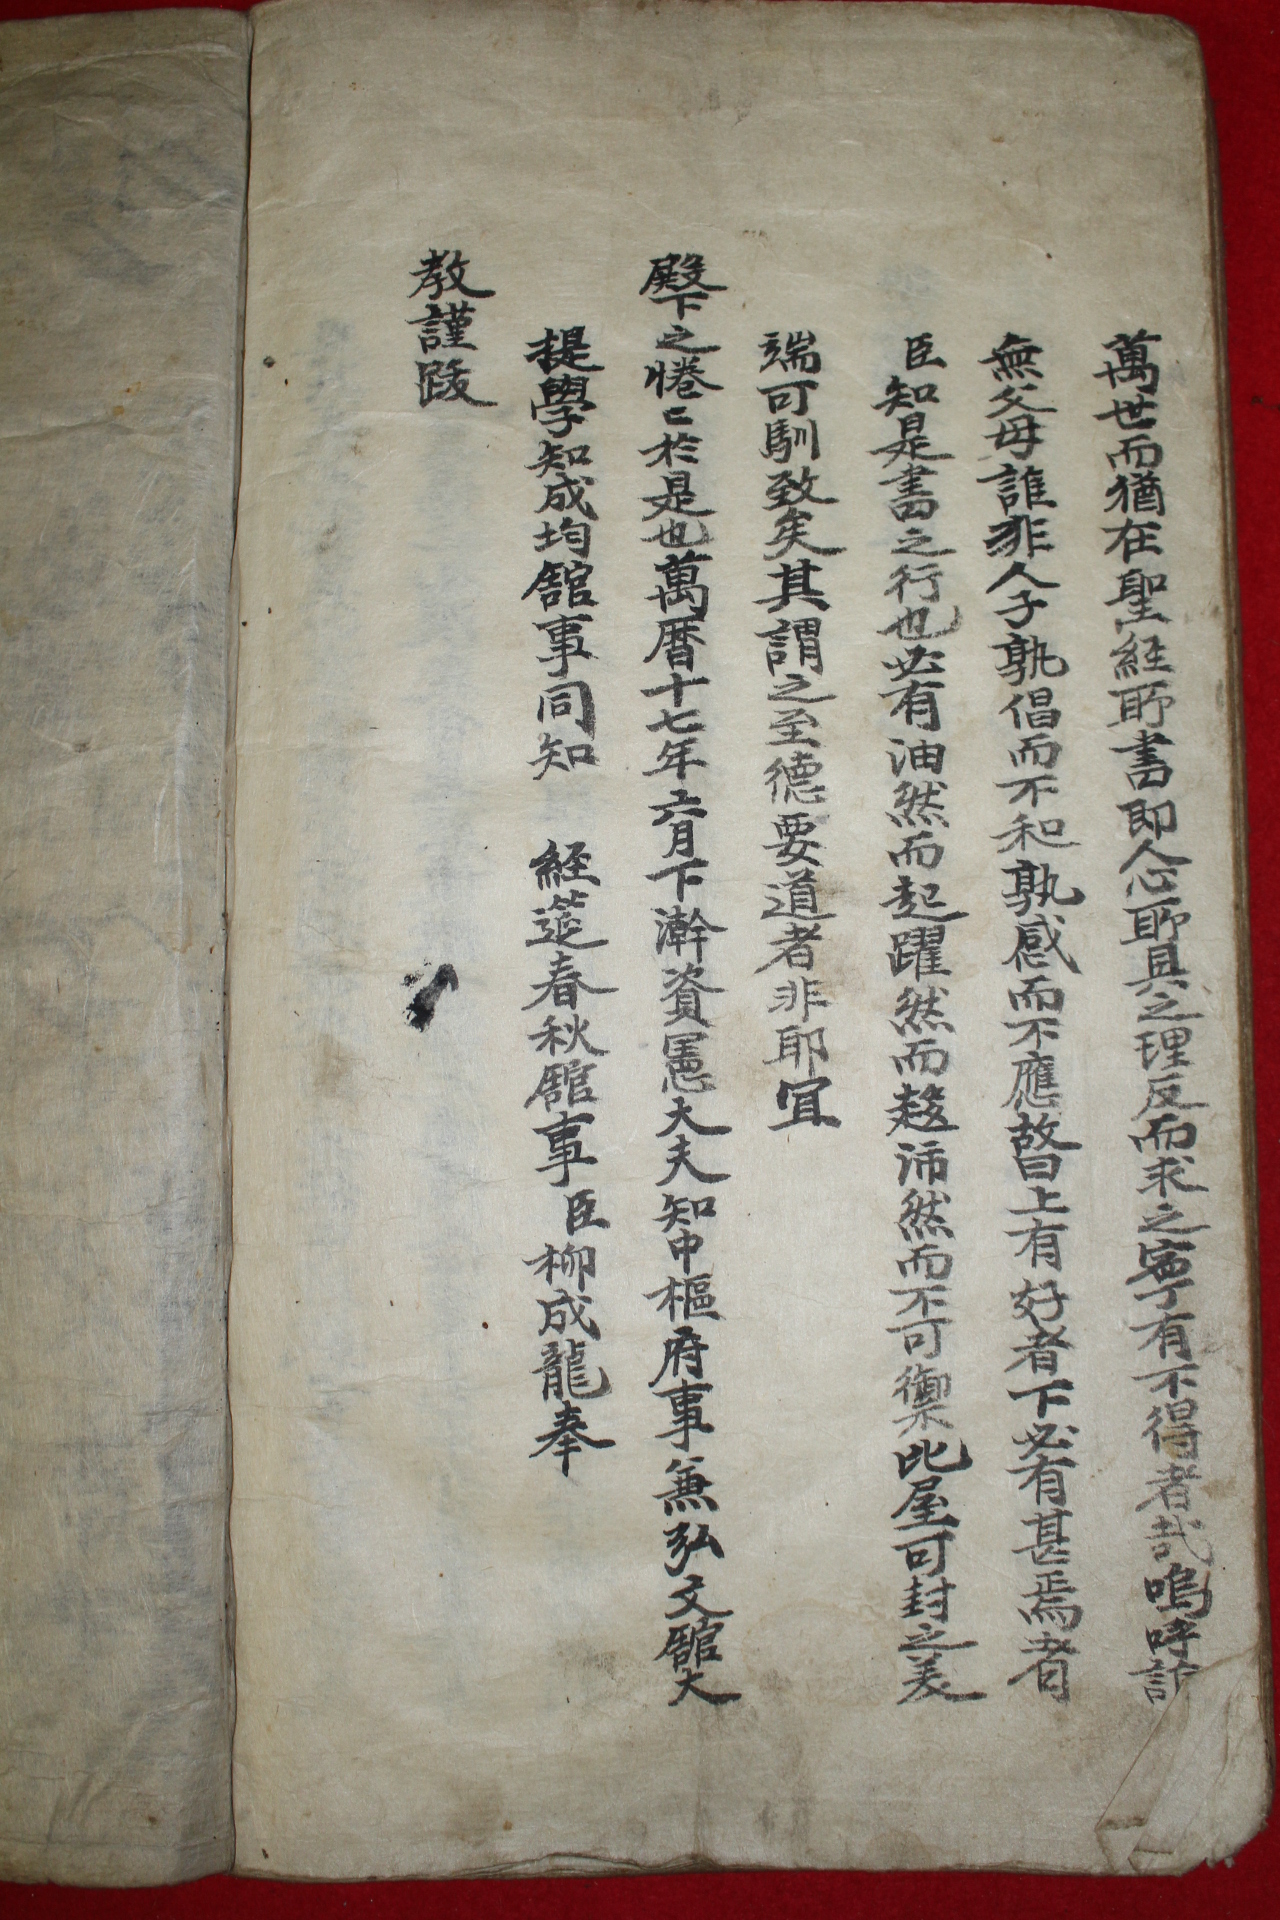 萬世而猶在聖經所書即人心所具之理反而求之寧有不得者哉嗚呼
無父母誰非人子孰倡而不和孰感而不應故曰上有好者下必有甚焉者
臣知是書之行也必有油然而起躍然而趍沛然而不可禦比屋可封之美
端可馴致矣其謂之至德要道者非耶宜
殿下之惓〻於是也萬曆十七年六月下澣資憲大夫知中樞府事兼弘文館大
提學知成均館事同知 經筵春秋館事臣柳成龍奉
教謹跋